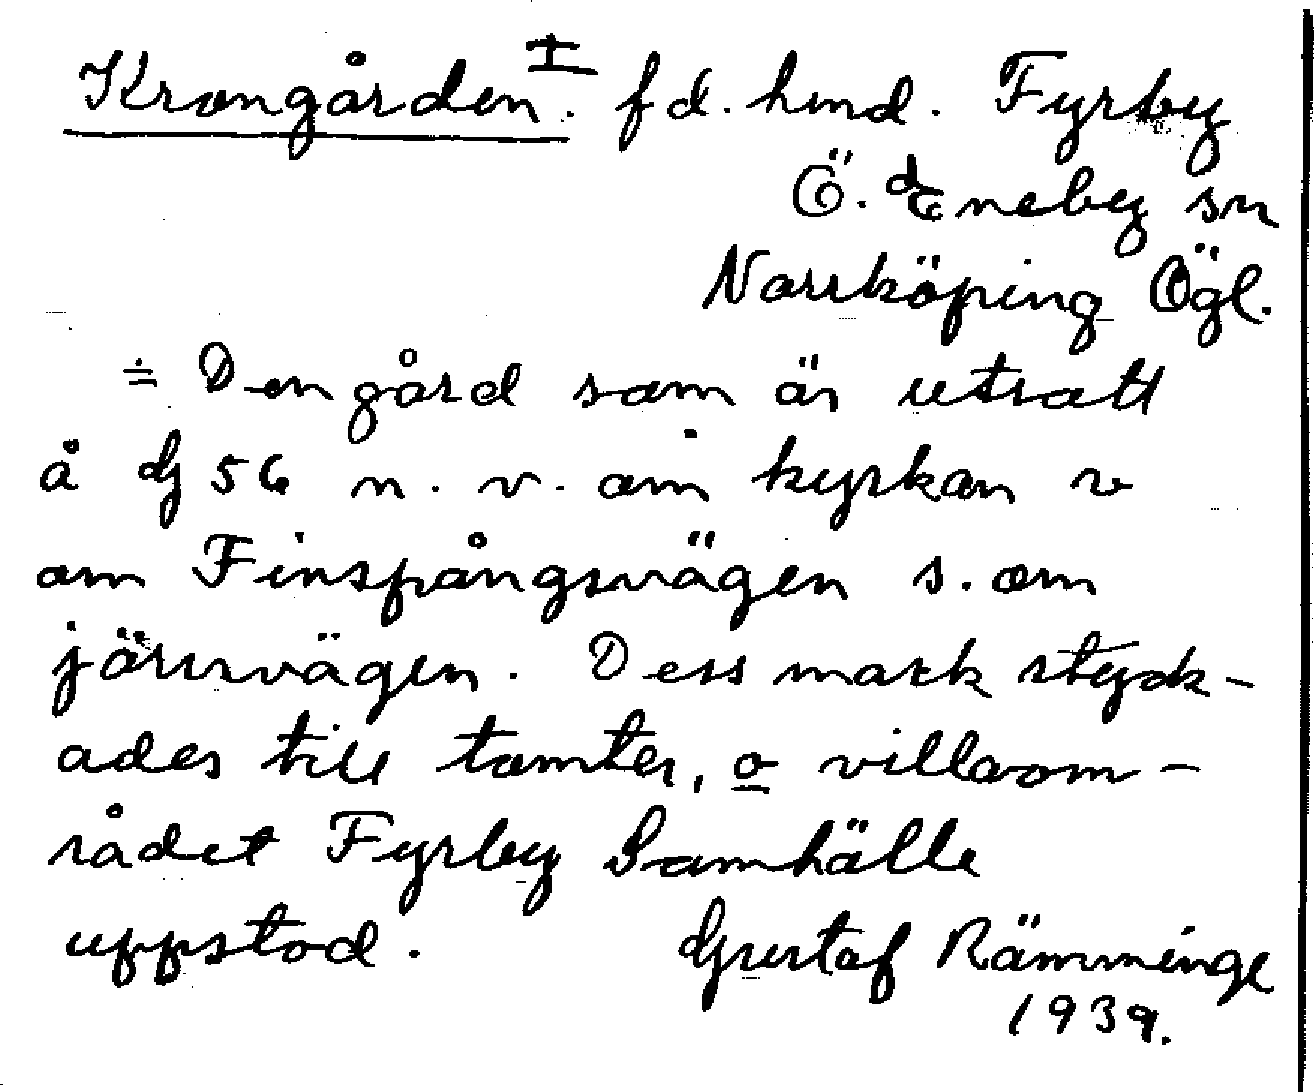 Krongården. I fd. hmd. Fyrby
Ö. Eneby sn
Norrköping Ögl.
÷ Den gård som är utsatt
å dj 56 n. v. om kyrkan v
om Finspångsvägen s. om
järnvägen. Dess mark styck-
ades till tomter, o villaom-
rådet Fyrby Samhälle
uppstod. Gustaf Rämminge
1939.